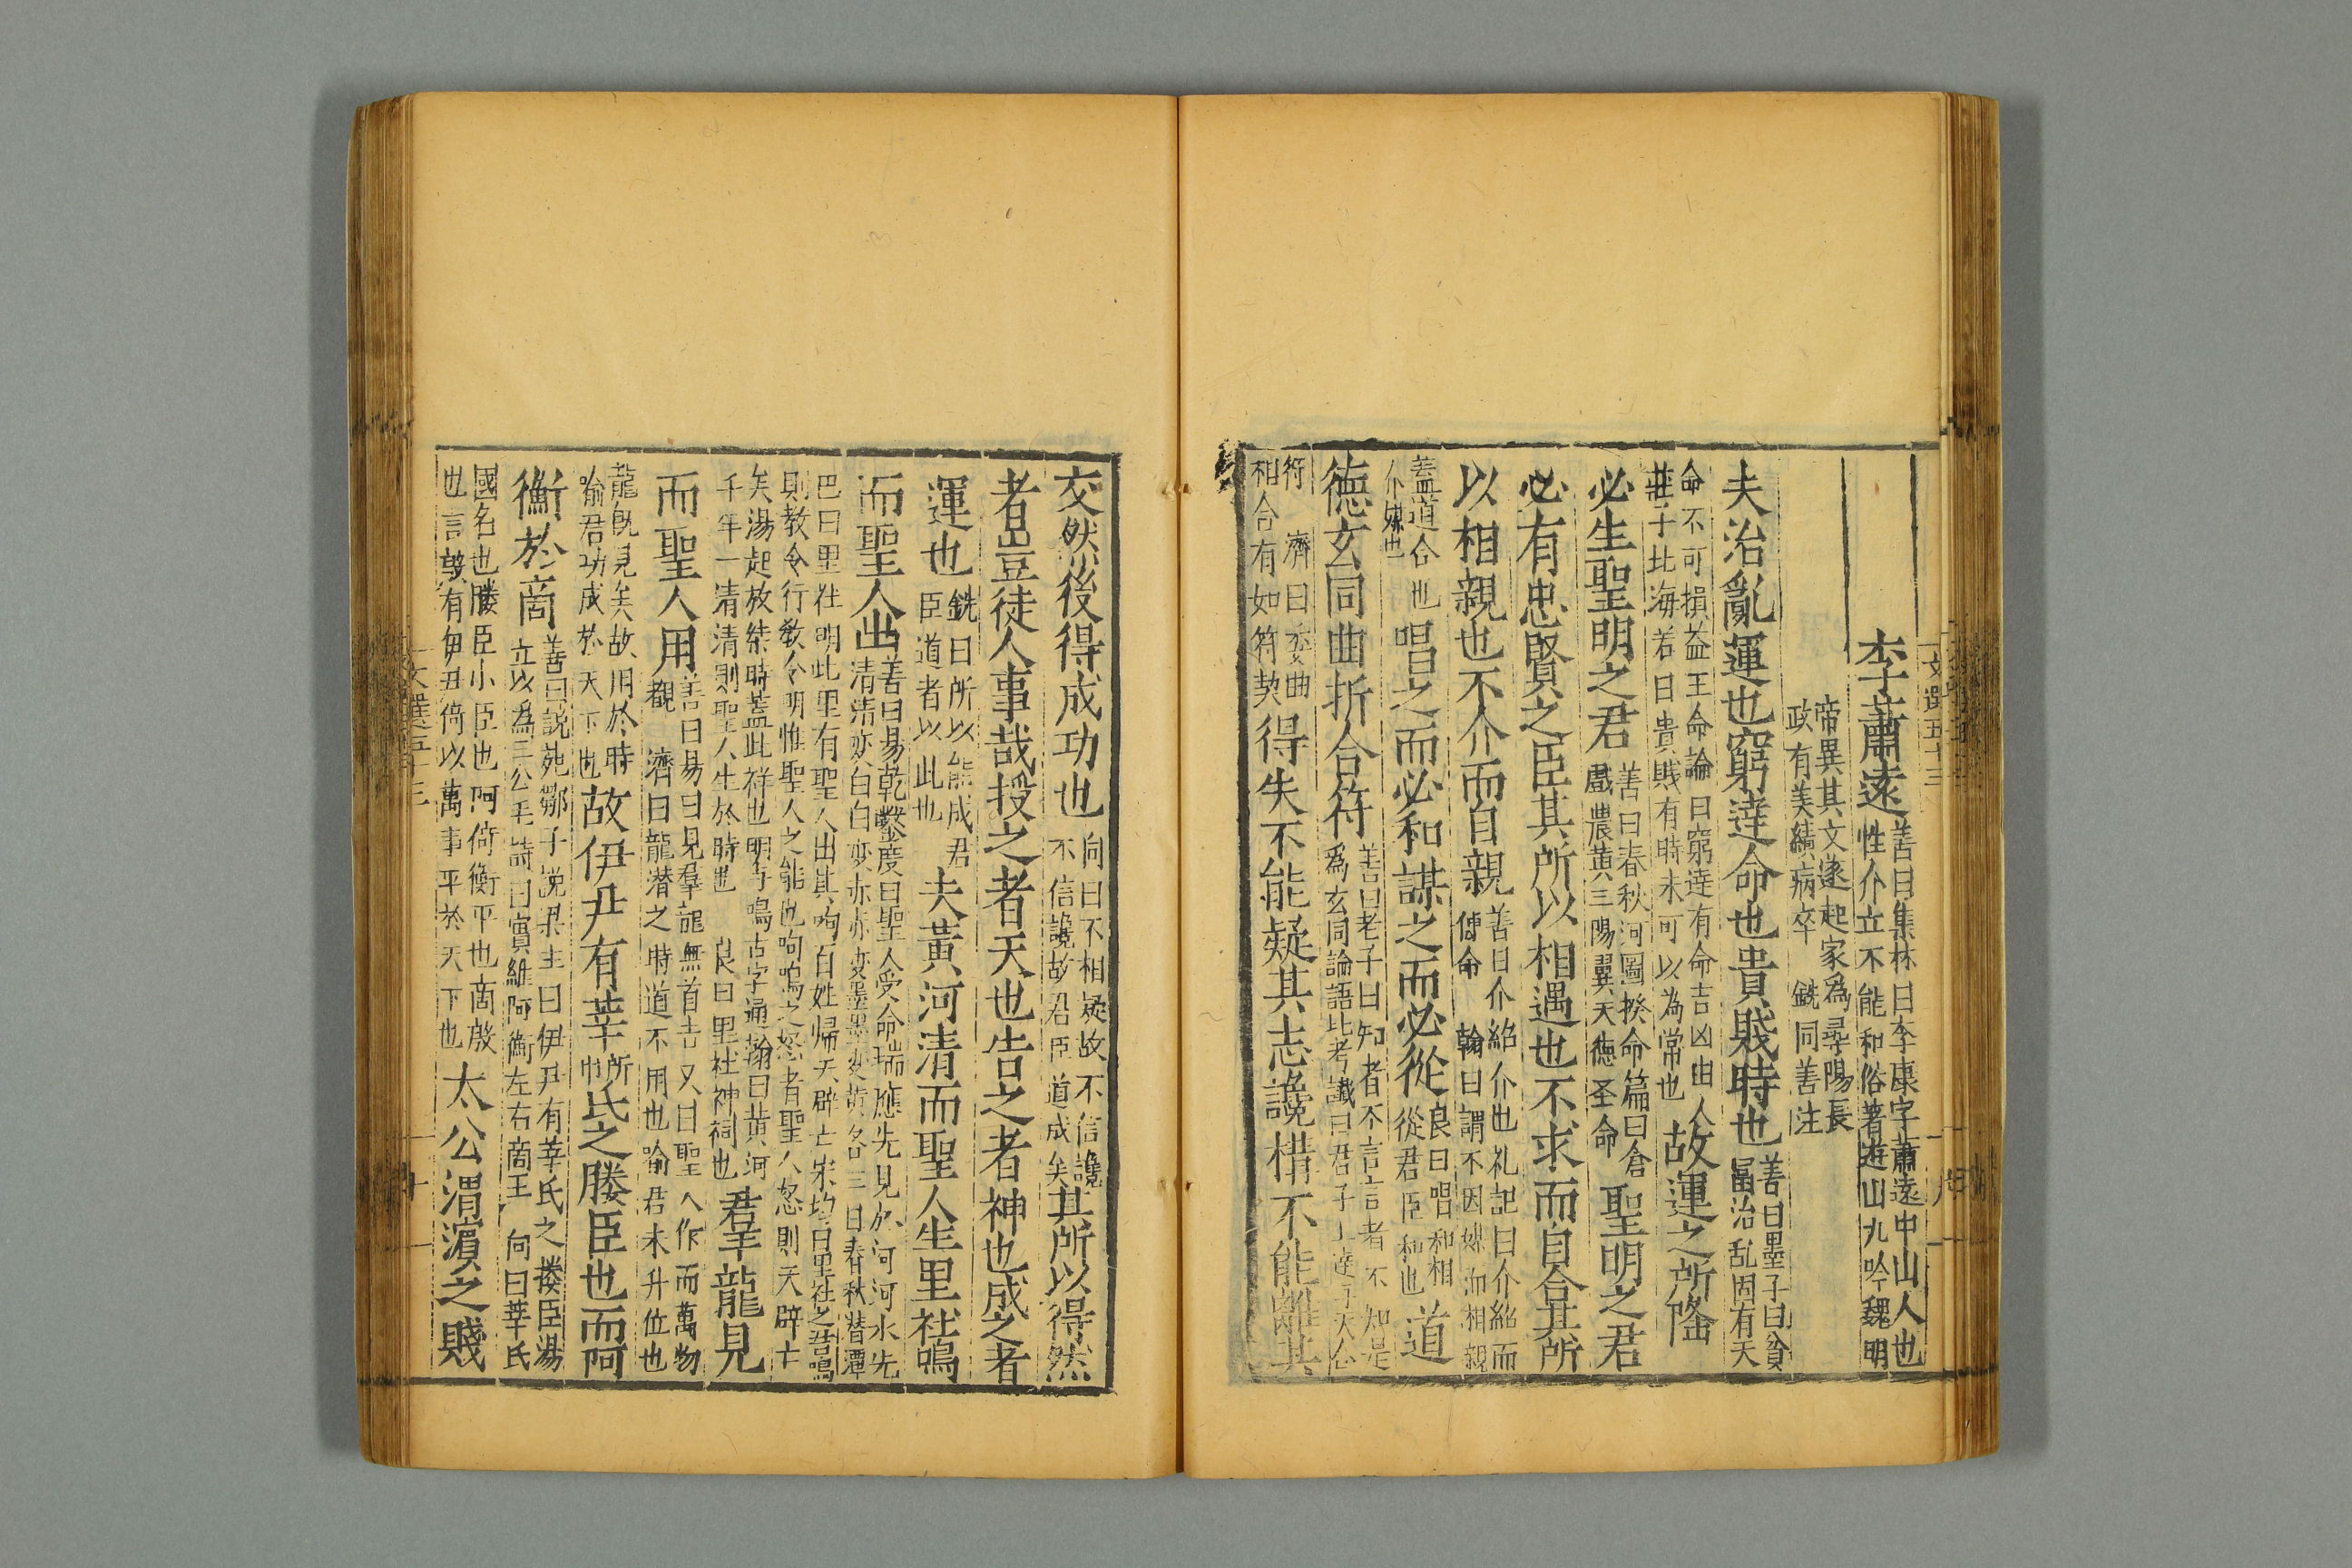 李蕭遠善曰集林曰李康字蕭遠中山人也性介立不能和俗著遊山九吟魏明
帝異其文遂起家為尋陽長政有美績病卒 銑同善注
夫治亂運也窮達命也貴賤時也善曰墨子曰貧富治乱固有天
命不可損益王命論曰窮達有命吉凶由人莊子北海若曰貴賤有時未可以為常也故運之所隆
必生聖明之君善曰春秋河圖揆命篇曰倉戲農黃三陽翼天德圣命聖明之君
必有忠賢之臣其所以相遇也不求而自合其所
以相親也不介而自親善曰介紹介也礼記曰介紹而傳命 翰曰謂不因媒而相親
蓋道合也介媒也唱之而必和謀之而必從良曰唱和相從君臣和也道
德玄同曲折合符善曰老子曰知者不言言者不知是為玄同論語比考讖曰君子上達与天合
符 濟曰委曲相合有如符契得失不能疑其志讒構不能離其
交然後得成功也向曰不相疑故不信讒不信讒故君臣道成矣其所以得然
者豈徒人事哉授之者天也告之者神也成之者
運也銑曰所以能成君臣道者以此也夫黃河清而聖人生里社鳴
而聖人出善曰易乾鑿度曰聖人受命瑞應先見於河河水先清清変白白変赤赤変墨黑変黄各三日春秋潜潭
巴曰里社明此里有聖人出其呴百姓帰天辟亡宋均曰里社之君鳴則教令行教令明惟聖人之能也呴鳴之怒者聖人怒則天辟亡
矣湯起放桀時蓋此祥也明与鳴古字通翰曰黄河千年一清清則聖人生於時也 良曰里社神祠也羣龍見
而聖人用善曰易曰見羣龍無首吉又曰聖人作而萬物覩 濟曰龍潜之時道不用也喻君未升位也
龍旣見矣故用於時喻君功成於天下也故伊尹有莘所巾氏之媵臣也而阿
衡於商善曰說苑鄒子說梁王曰伊尹有莘氏之媵臣湯立以為三公毛詩曰實維阿衡左右商王 向曰莘氏
國名也媵臣小臣也阿倚衡平也商殷也言毀有伊尹倚以萬事平於天下也太公渭濵之賤
文選五十三
文選五十三